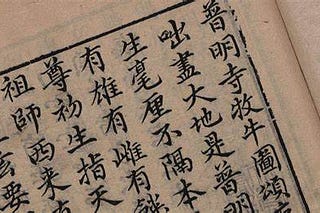 普明寺牧牛圖頌
咄盡大地是普明
生毫厘不隔本
有雄有雌有
尊初生指天
祖師西来
玄要